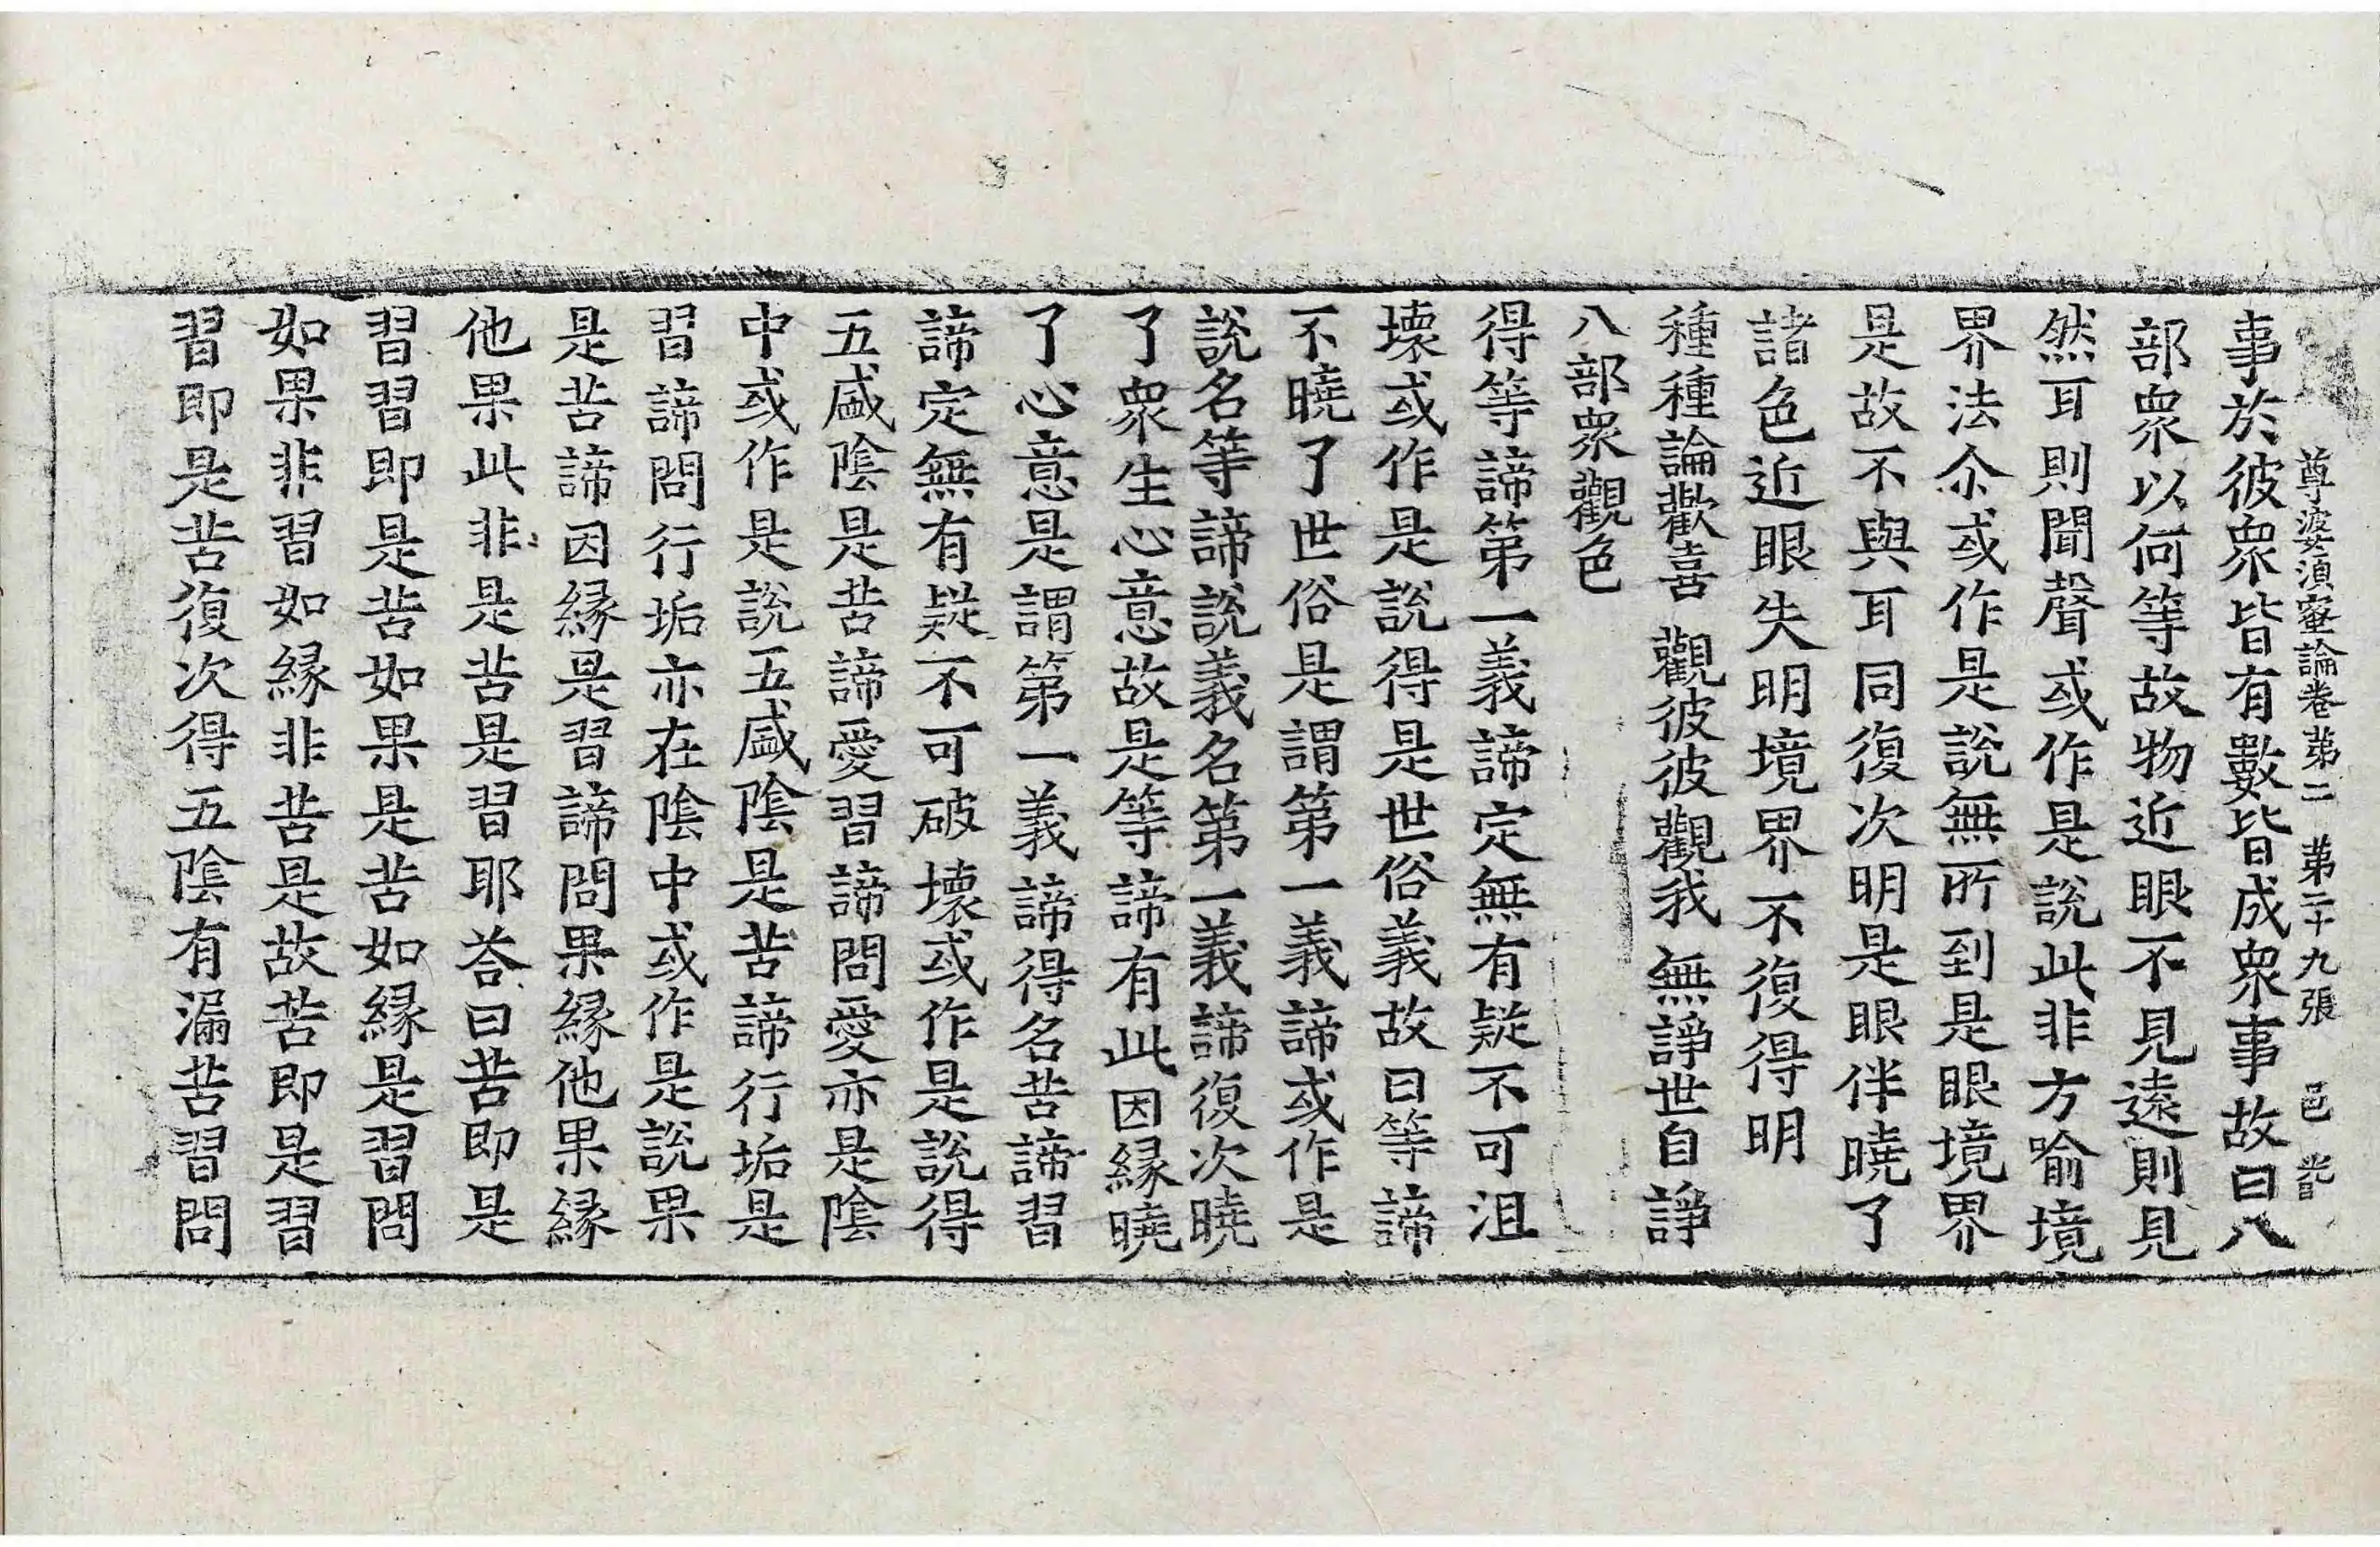 尊婆須蜜論卷苐二 苐二十九張 邑
事於彼衆皆有數皆成衆事故曰八
部衆以何等故物近眼不見遠則見
然耳則聞聲或作是說此非方喻境
界法尒或作是說無所到是眼境界
是故不與耳同復次明是眼伴曉了
諸色近眼失明境界不復得明
種種論歡喜 觀彼彼觀我 無諍世自諍
八部衆觀色
得等諦第一義諦定無有疑不可沮
壞或作是說得是世俗義故曰等諦
不曉了世俗是謂第一義諦或作是
說名等諦說義名第一義諦復次曉
了衆生心意故是等諦有此因縁曉
了心意是謂第一義諦得名苦諦習
諦定無有疑不可破壞或作是說得
五盛陰是苦諦愛習諦問愛亦是陰
中或作是說五盛陰是苦諦行垢是
習諦問行垢亦在陰中或作是說果
是苦諦因縁是習諦問果縁他果縁
他果此非是苦是習耶荅曰苦即是
習習即是苦如果是苦如縁是習問
如果非習如縁非苦是故苦即是習
習即是苦復次得五陰有漏苦習問